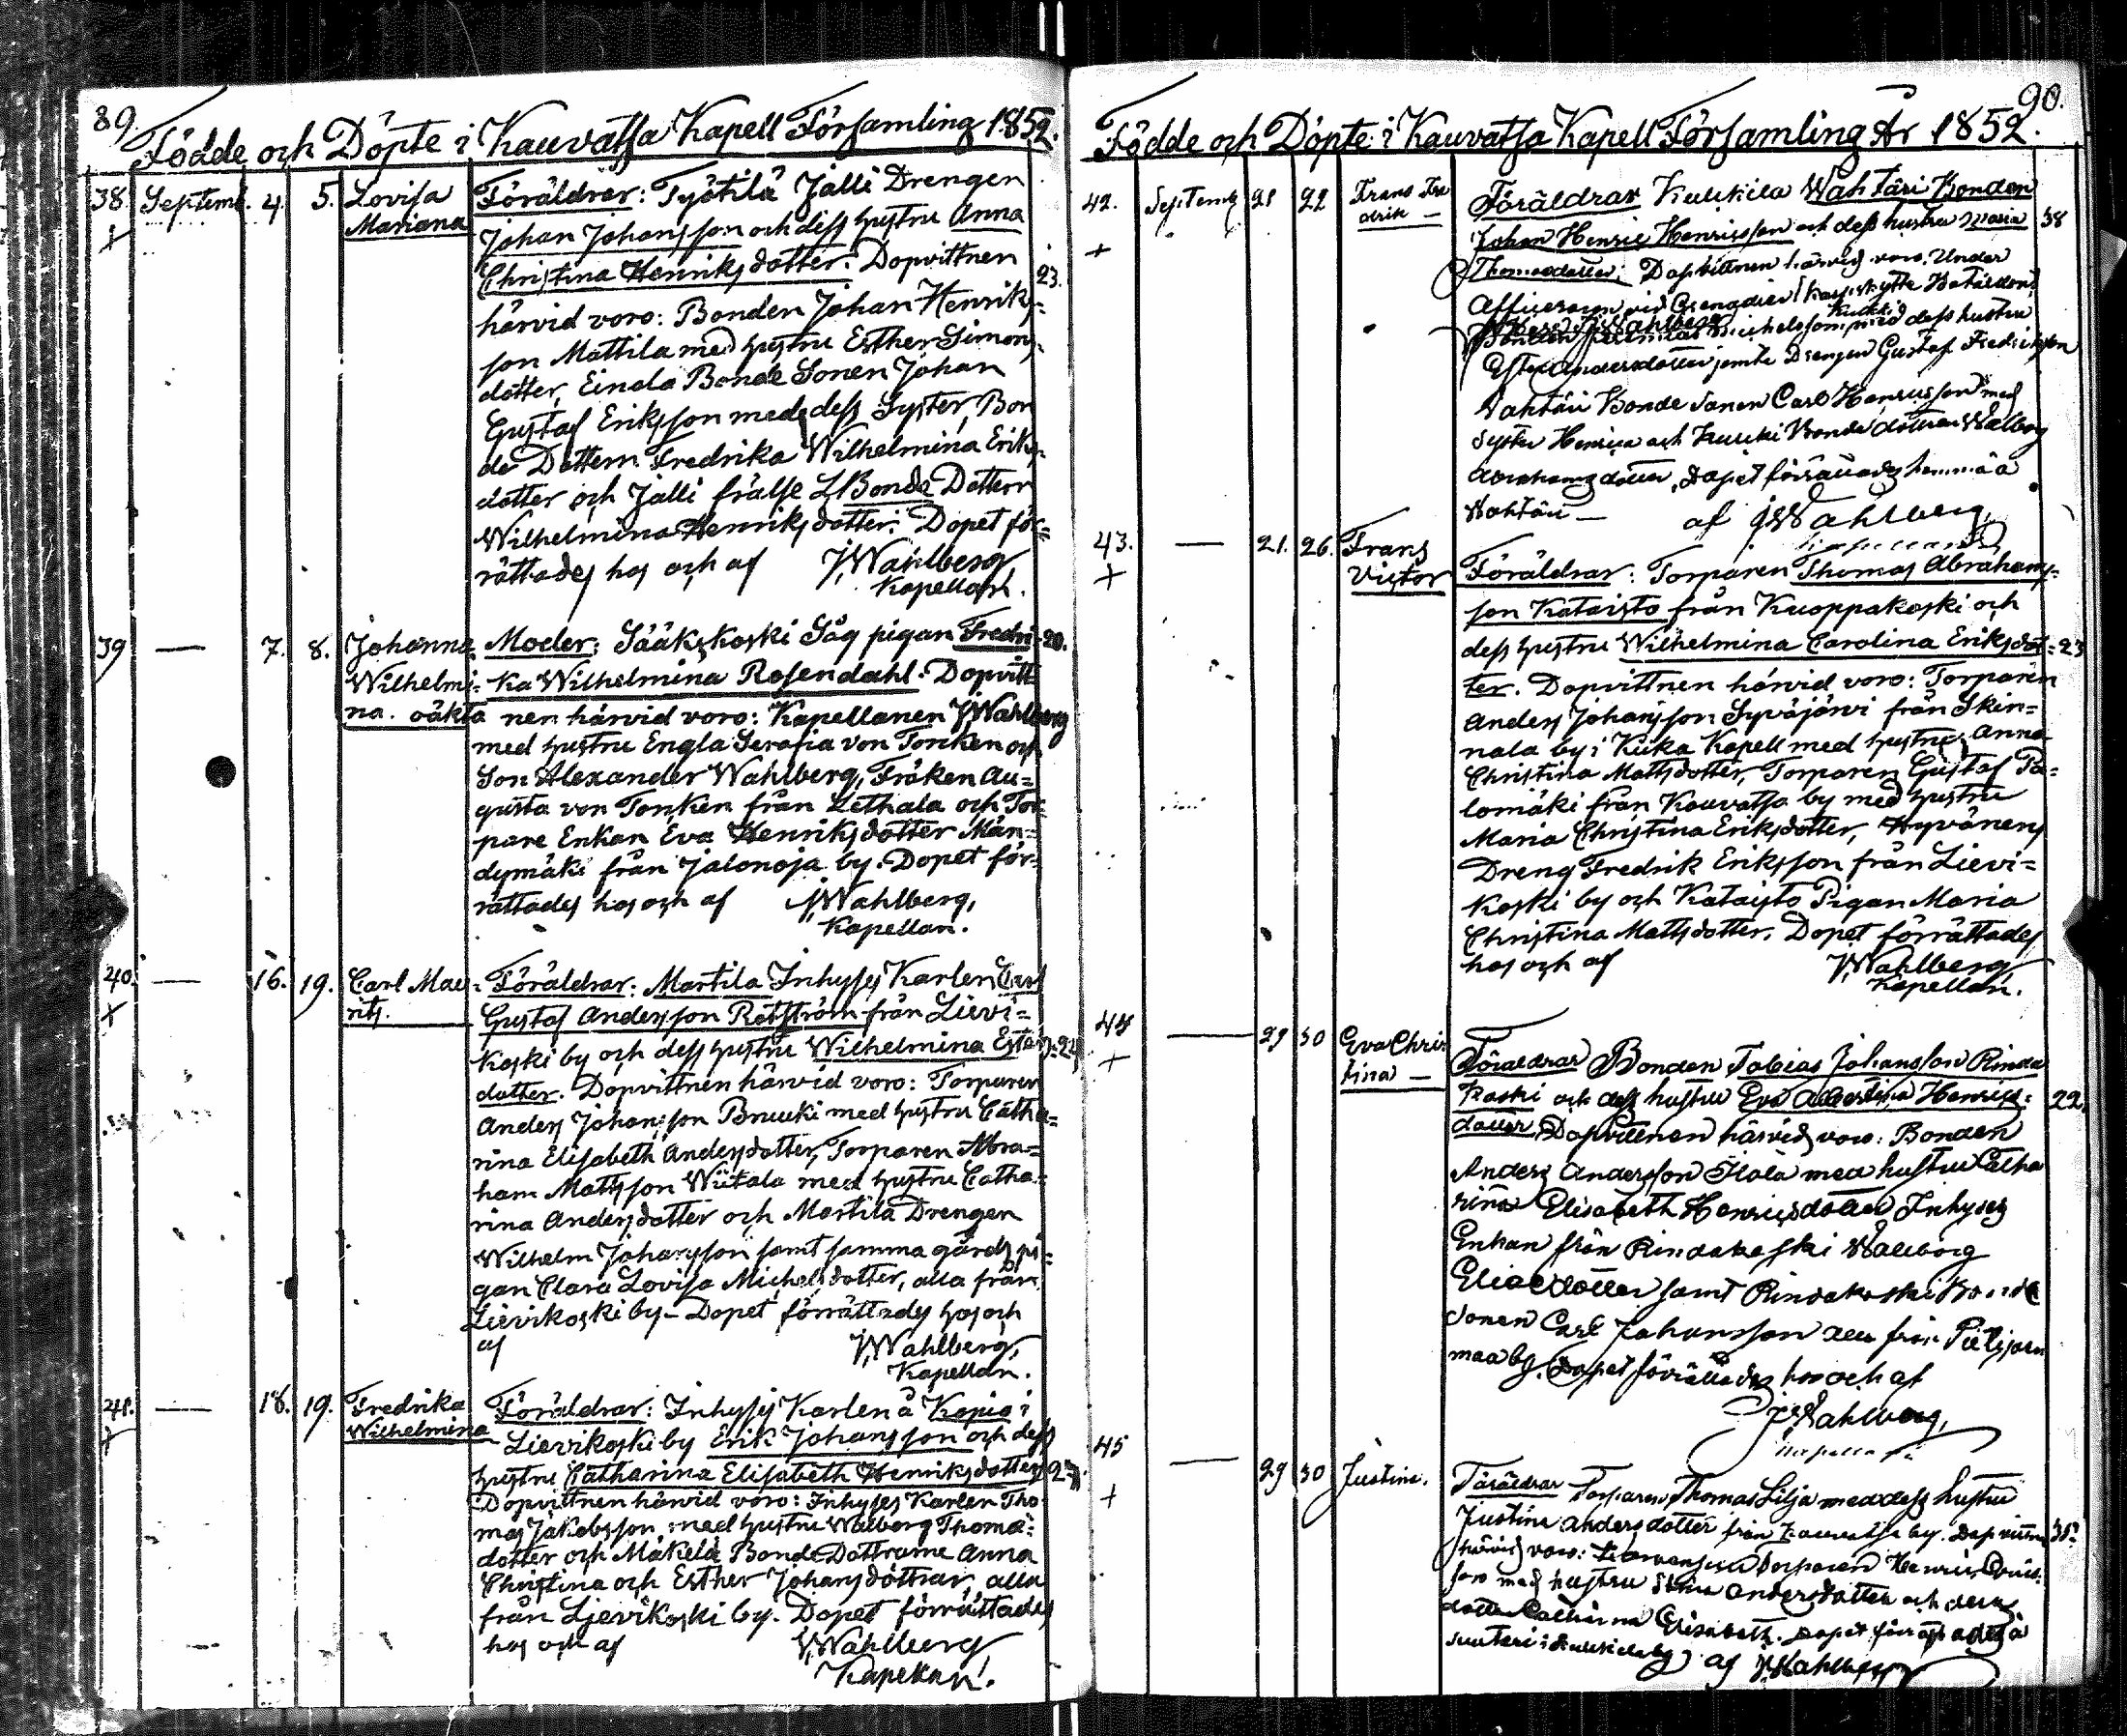 89.
Födde och Döpte i Kauvatsa Kapell Församling 1852.
38. Septemb. 4. 5. Lovisa Mariana
Föräldrar: Työtilä Jalli Drengen
Johan Johansson och dess hustru Anna
Christina Henriksdotter. Dopvittnen 23.
härvid voro: Bonden Johan Henriks-
son Mattila med hustru Esther Simons-
dotter, Einola Bonde Sonen Johan
Gustaf Eriksson med dess Syster, Bon
de Dottern Fredrika Wilhelmina Eriks-
dotter och Jalli frälse Bonde Dottern
Wilhelmina Henriksdotter. Dopet för-
rättades hos och af JWahlberg
Kapellan.
39 — 7. 8. Johanna Wilhelmi- na. oäkta
Moder: Sääkskoski Såg pigan Fredri- 20.
ka Wilhelmina Rosendahl. Dopvitt-
nen härvid voro: Kapellanen JWahlberg
med hustru Engla Serafia von Tonken och
Son Alexander Wahlberg, Fröken Au-
gusta von Tonken från Lethala och Tor-
pare Enkan Eva Henriksdotter Män-
dymäki från Jalonoja by. Dopet för-
rättades hos och af JWahlberg,
Kapellan.
40. — 16. 19. Carl Mau- rits.
Föräldrar: Martila Inhyses Karlen Carl
Gustaf Andersson Rotström från Lievi-
koski by och dess hustru Wilhelmina Esters-
dotter. Dopvittnen härvid voro: Torparen
Anders Johansson Bruuki med hustru Catha-
rina Elisabeth Andersdotter, Torparen Abra-
ham Mattsson Wiitala med hustru Catha-
rina Andersdotter och Martila Drengen
Wilhelm Johansson samt samma gårds pi-
gan Clara Lovisa Michelsdotter, alla från
Lievikoski by. Dopet förrättades hos och
af JWahlberg,
Kapellan.
41. — 18. 19. Fredrika Wilhelmina
Föräldrar: Inhyses Karlen å Kopio i
Lievikoski by Erik Johansson och dess
hustru Catharina Elisabeth Henriksdotter 27.
Dopvittnen härvid voro: Inhyses Karlen Tho-
mas Jakobsson med hustru Walborg Thomæ-
dotter och Mäkelä Bonde Dottrarne Anna
Christina och Esther Johansdöttrar, alla
från Ljevikoski by. Dopet förrättades
hos och af JWahlberg
Kapellan.
90.
Födde och Döpte i Kauvatsa Kapell Församling År 1852.
42. Septemb 21 22 Frans Fre drik —
Föräldrar Kuukila Wahtäri Bonden
Johan Henric Henricsson och dess hustru Maria 38
Thomasdotter. Dopvittnen härvid voro. Under
Officeraren vid Grenadier Skarpskytte Bataillon
Bonden Michelsson Kukki med dess hustru
Ester Andersdotter jemte Drengen Gustaf Fredriksson
Vahtäri Bonde Sonen Carl Henricsson med
Syster Henrica och Kuuki Bonde dottern Walborg
Abrahamsdotter, Dopet förrättades hemma å
Wahtäri — af JWahlberg,
Kapellan
43. — 21. 26. Frans Victor
Föräldrar: Torparen Thomas Abrahams-
son Kataisto från Kuoppakoski och
dess hustru Wilhelmina Carolina Eriksdot- 23
ter. Dopvittnen härvid voro: Torparen
Anders Johansson Syväjärvi från Skin-
nala by i Kiika Kapell med hustru Anna
Christina Mattsdotter, Torparen Gustaf Pa-
lomäki från Kauvatsa by med hustru
Maria Christina Eriksdotter, Hyvänens
Dreng Fredrik Eriksson från Lievi-
koski by och Kataisto Pigan Maria
Christina Mattsdotter. Dopet förrättades
hos och af JWahlberg
Kapellan.
44 — 29 30 Eva Chris tina —
Föräldrar Bonden Tobias Johansson Rinda
koski och dess hustru Eva Albertina Henrics- 22.
dotter Dopvittnen härvid voro: Bonden
Anders Andersson Ilola med hustru Catha
rina Elisabeth Henricsdotter Inhyses
Enkan från Rindakoski Walborg
Eliaedotter samt Rindakoski Bonde
Sonen Carl Johansson från
maa by. Dopet förrättades hos och af
JWahlberg,
Kapellan
45 — 29 30 Justina.
Föräldrar Torparen Thomas Lilja med dess hustru
Justina Andersdotter från Kauvatsa by. Dopvittnen 35
härvid voro: Torparen Henric
son med hustru Andersdotter och deras
dotter Catharina Elisabeth. Dopet förrättades å
Suutari i Kuukila by af JWahlberg